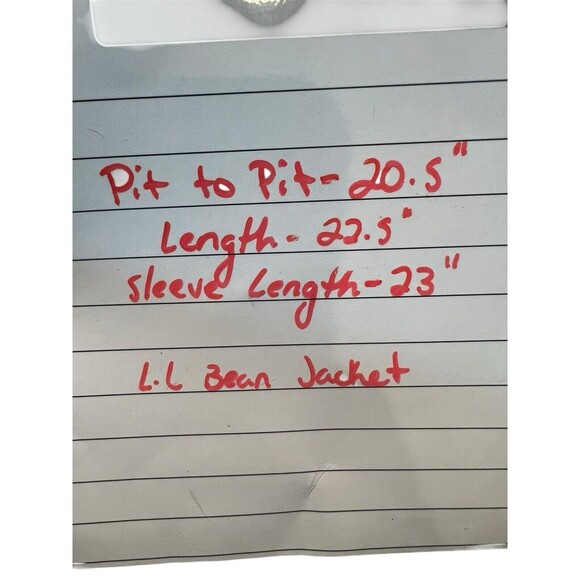 Pit to Pit- 20.5"
Length- 22.5"
Sleeve Length- 23"
L.L Bean Jacket